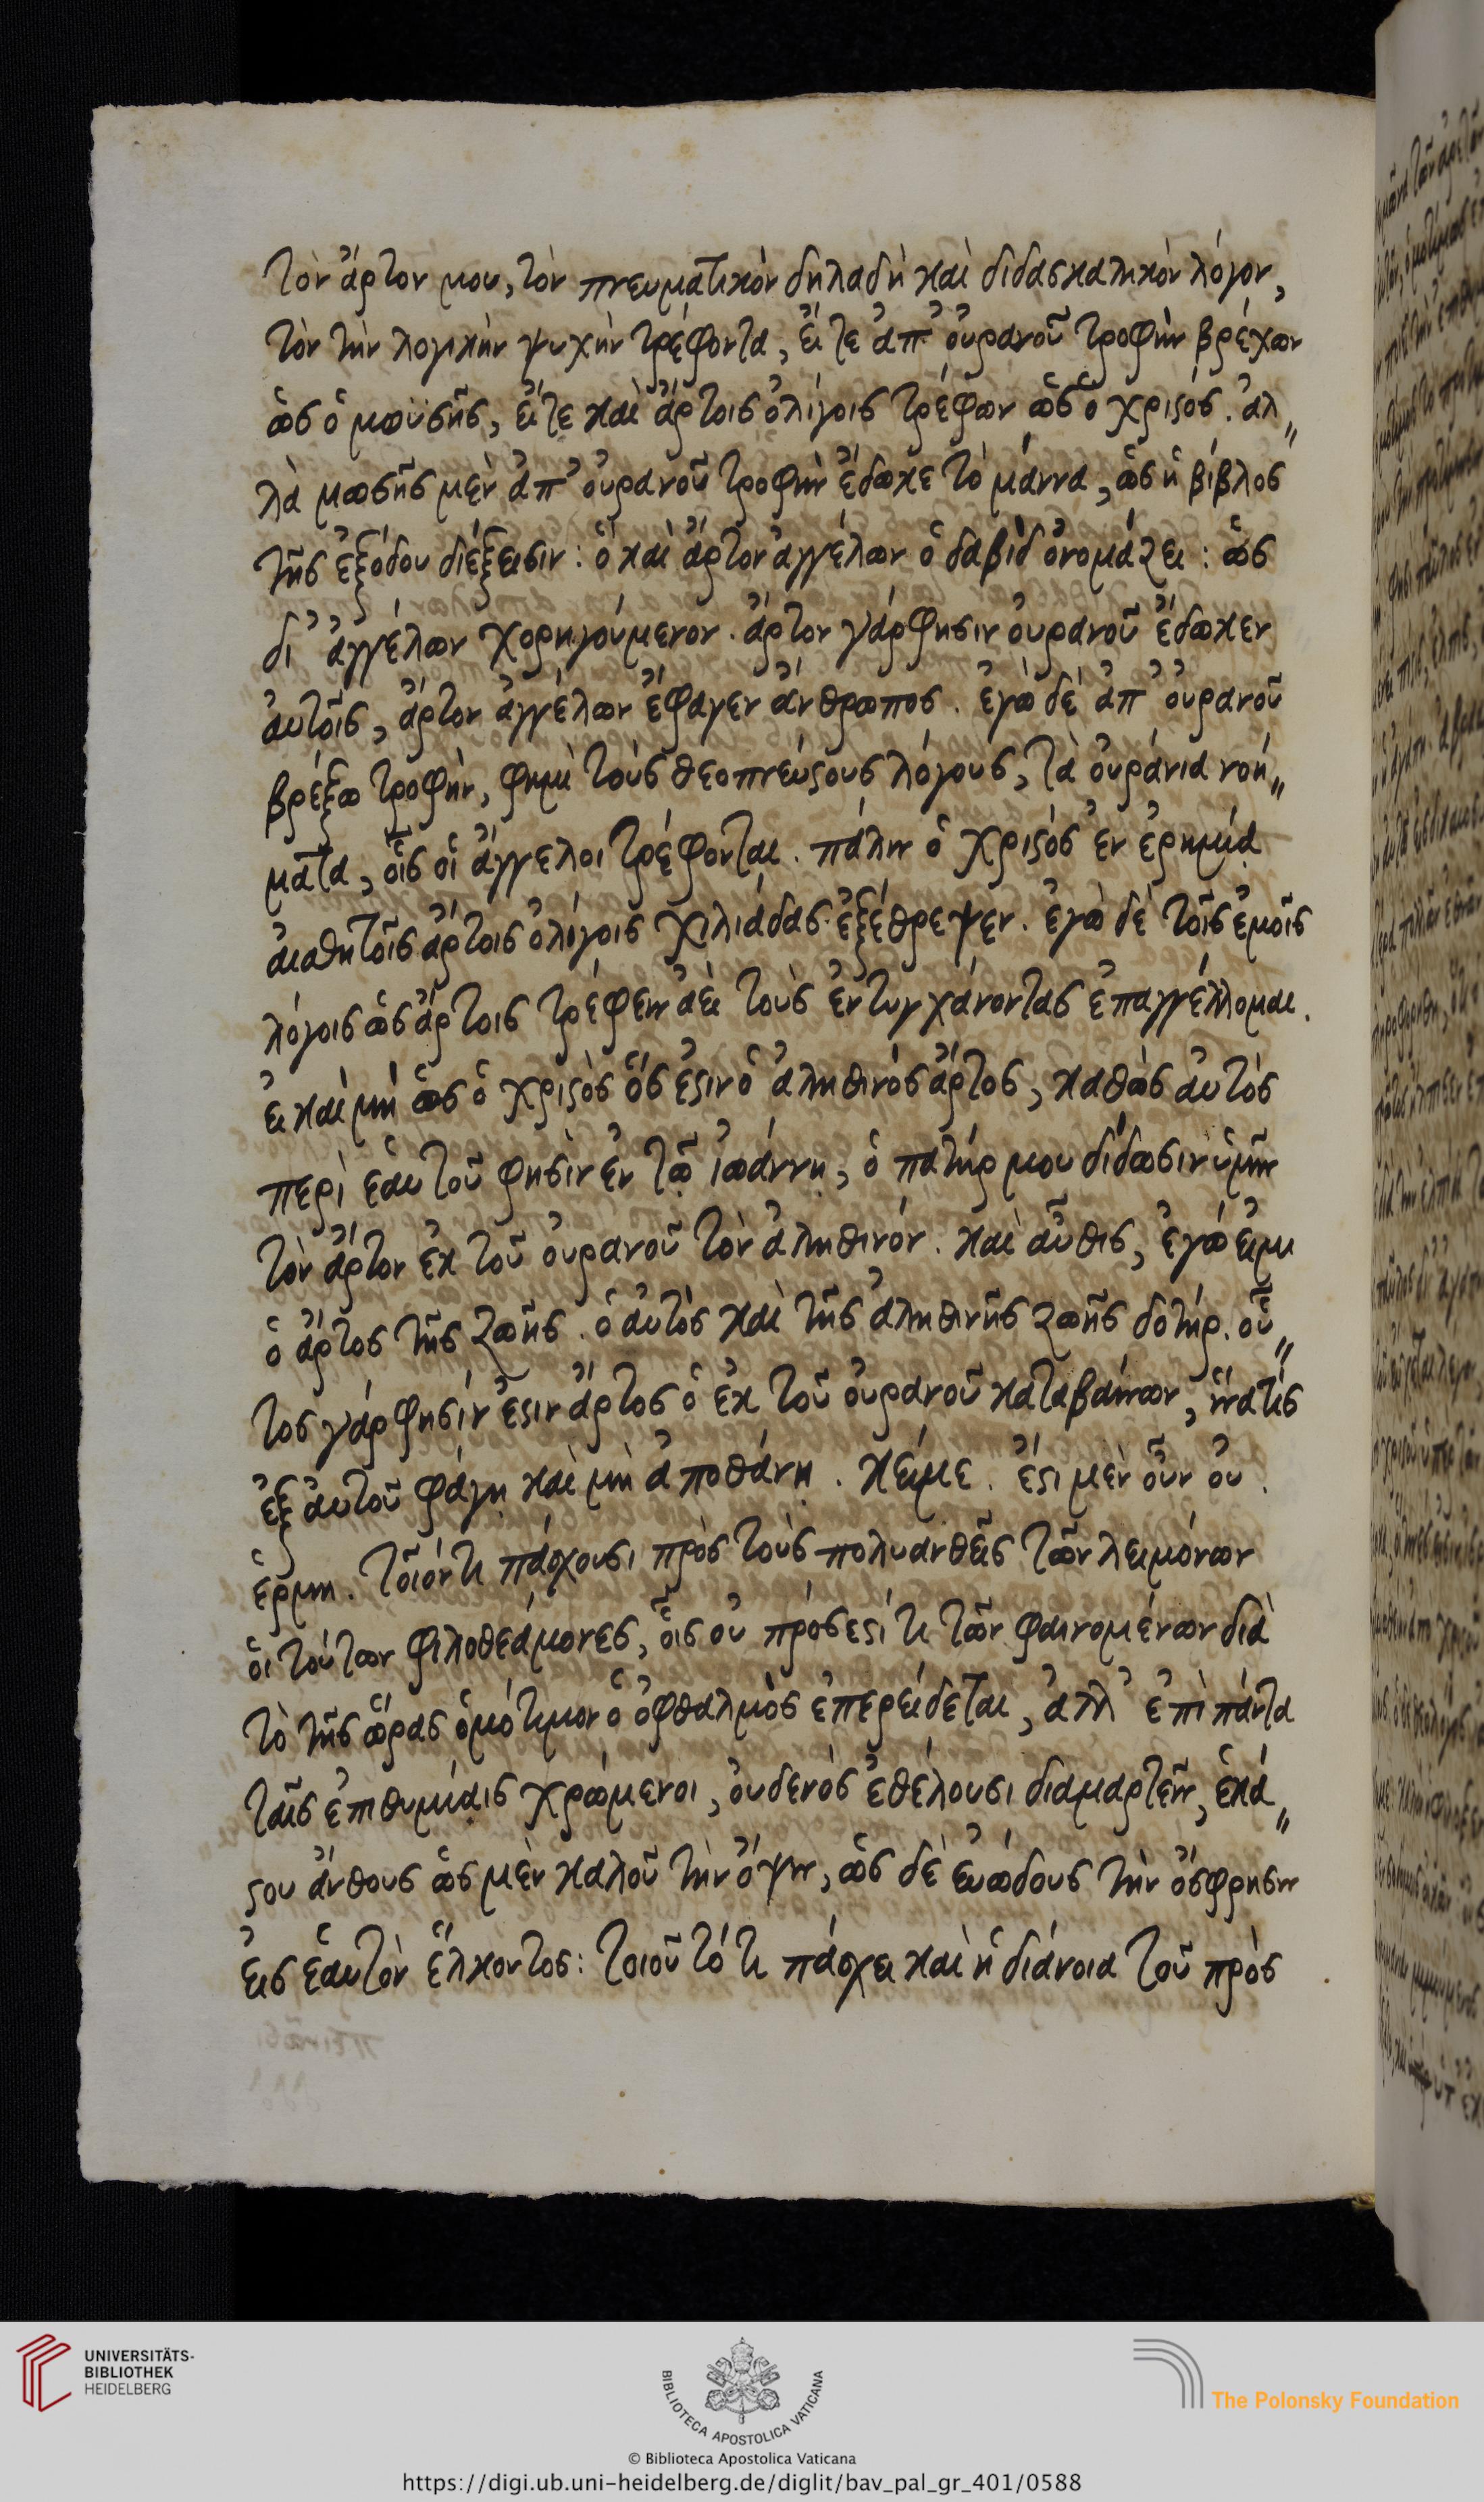 τὸν ἄρτον μου, τὸν πνευματικὸν δηλαδὴ καὶ διδασκαλικὸν λόγον,
τὸν τὴν λογικὴν ψυχὴν τρέφοντα, εἴτε ἀπ' οὐρανοῦ τροφὴν βρέχων
ὡς ὁ μωϋσῆς, εἴτε καὶ ἄρτοις ὀλίγοις τρέφων ὡς ὁ χριϛός. ἀλ„
λὰ μωσῆς μὲν ἀπ' οὐρανοῦ τροφὴν ἔδωκε τὸ μάννα, ὡς ἡ βίβλος
τῆς ἐξόδου διέξεισιν: ὃ καὶ ἄρτον ἀγγέλων ὁ δαβὶδ ὀνομάζει: ὡς
δι' ἀγγέλων χορηγούμενον. ἄρτον γάρ φησιν οὐρανοῦ ἔδωκεν
αὐτοῖς, ἄρτον ἀγγέλων ἔφαγεν ἄνθρωπος. ἐγὼ δὲ ἀπ' οὐρανοῦ
βρέξω τροφὴν, φημὶ τοὺς θεοπνεύϛους λόγους, τὰ οὐράνια νοή„
ματα, οἷς οἱ ἄγγελοι τρέφονται. πάλιν ὁ χριϛὸς ἐν ἐρημίᾳ
αἰσθητοῖς ἄρτοις ὀλίγοις χιλιάδας ἐξέθρεψεν. ἐγὼ δὲ τοῖς ἐμοῖς
λόγοις ὡς ἄρτοις τρέφειν ἀεὶ τοὺς ἐντυγχάνοντας ἐπαγγέλλομαι.
εἰ καὶ μὴ ὡς ὁ χριϛὸς ὅς ἐϛιν ὁ ἀληθινὸς ἄρτος, καθὼς αὐτὸς
περὶ ἑαυτοῦ φησὶν ἐν τῷ ἰωάννῃ, ὁ πατήρ μου δίδωσιν ὑμῖν
τὸν ἄρτον ἐκ τοῦ οὐρανοῦ τὸν ἀληθινόν. καὶ αὖθις, ἐγώ εἰμι
ὁ ἄρτος τῆς ζωῆς. ὁ αὐτὸς καὶ τῆς ἀληθινῆς ζωῆς δοτήρ. οὗ„
τος γάρ φησίν ἐϛιν ἄρτος ὁ ἐκ τοῦ οὐρανοῦ καταβαίνων, ἵνα τίς
ἐξ αὐτοῦ φάγῃ καὶ μὴ ἀποθάνῃ. κείμε. ἔϛι μὲν οὖν οὐ.
ἑρμη. τοῖόν τι πάσχουσι πρὸς τοὺς πολυανθεῖς τῶν λειμόνων
οἱ τούτων φιλοθεάμονες, οἷς οὐ πρόσεϛί τι τῶν φαινομένων διὰ
τὸ τῆς ὥρας ὁμότιμον ὁ ὀφθαλμὸς ἐπερείδεται, ἀλλ' ἐπὶ πάντα
ταῖς ἐπιθυμίαις χρώμενοι, οὐδενὸς ἐθέλουσι διαμαρτεῖν, ἑκά„
ϛου ἄνθους ὡς μὲν καλοῦ τὴν ὄψιν, ὡς δὲ εὐώδους τὴν ὄσφρησιν
εἰς ἑαυτὸν ἕλκοντος: τοιοῦτό τι πάσχει καὶ ἡ διάνοια τοῦ πρὸς
UNIVERSITÄTS-
BIBLIOTHEK
HEIDELBERG
BIBLIOTECA APOSTOLICA VATICANA
The Polonsky Foundation
© Biblioteca Apostolica Vaticana
https://digi.ub.uni-heidelberg.de/diglit/bav_pal_gr_401/0588